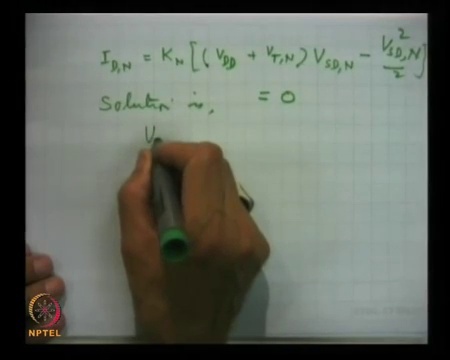 I_{D,N} = K_N [ ( V_{DD} + V_{T,N} ) V_{SD,N} - \frac{V_{SD,N}^2}{2} ]
Solution is, = 0
V
NPTEL